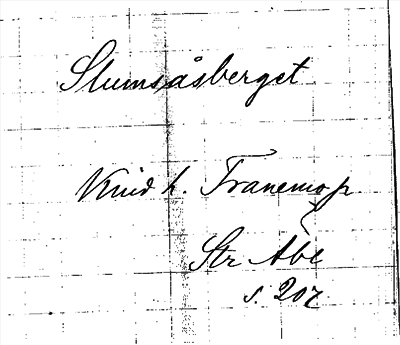 Slumsåsberget
Kind h. Tranemo p.
Str Abc
s. 207